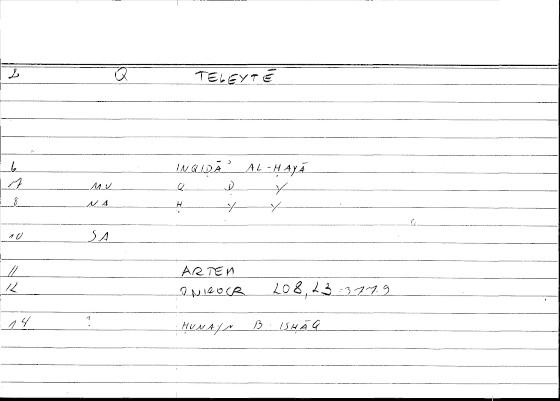 2 Q TELEYTĒ
6 INQIḌĀʾ AL-ḤAYĀ
7 MV Q Ḍ Y
8 NA Ḥ Y Y
10 SA
11 ARTEM
12 ONIROCR 208,23 =3779
14 ? ḤUNAYN B ISḤĀQ